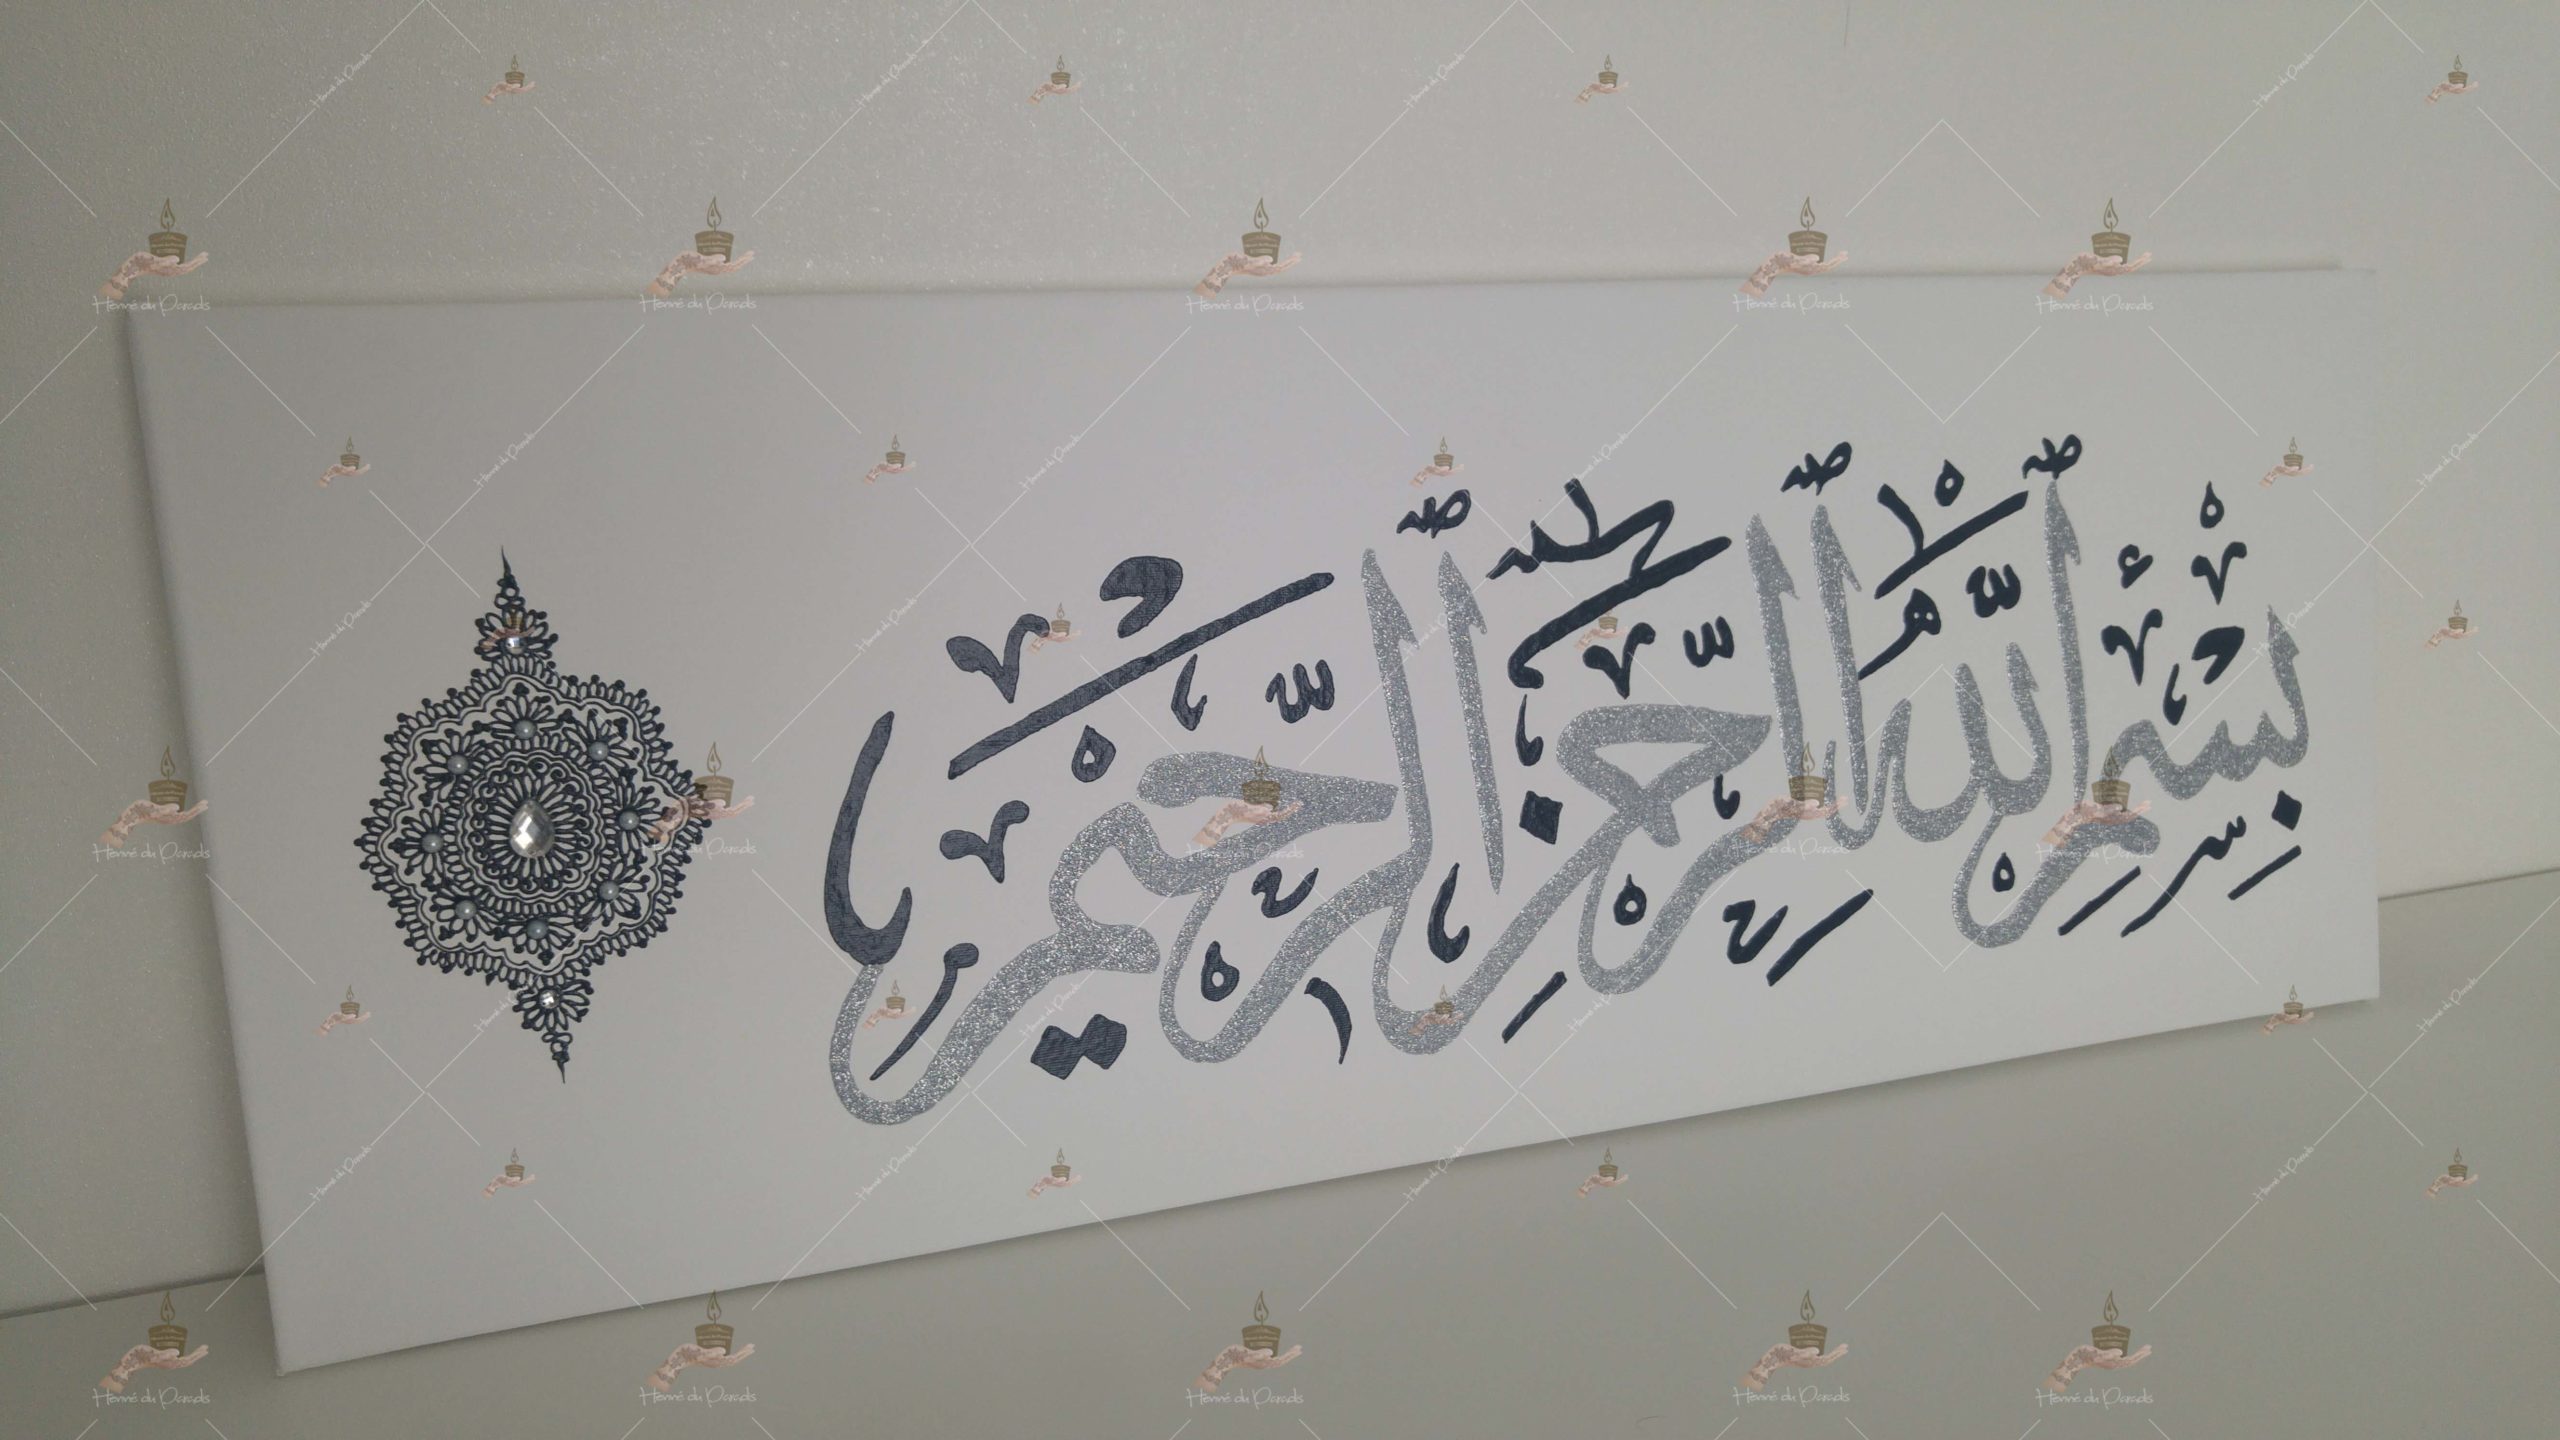 بِسْمِ ٱللَّهِ ٱلرَّحْمَٰنِ ٱلرَّحِيمِ
Henné du Paradis